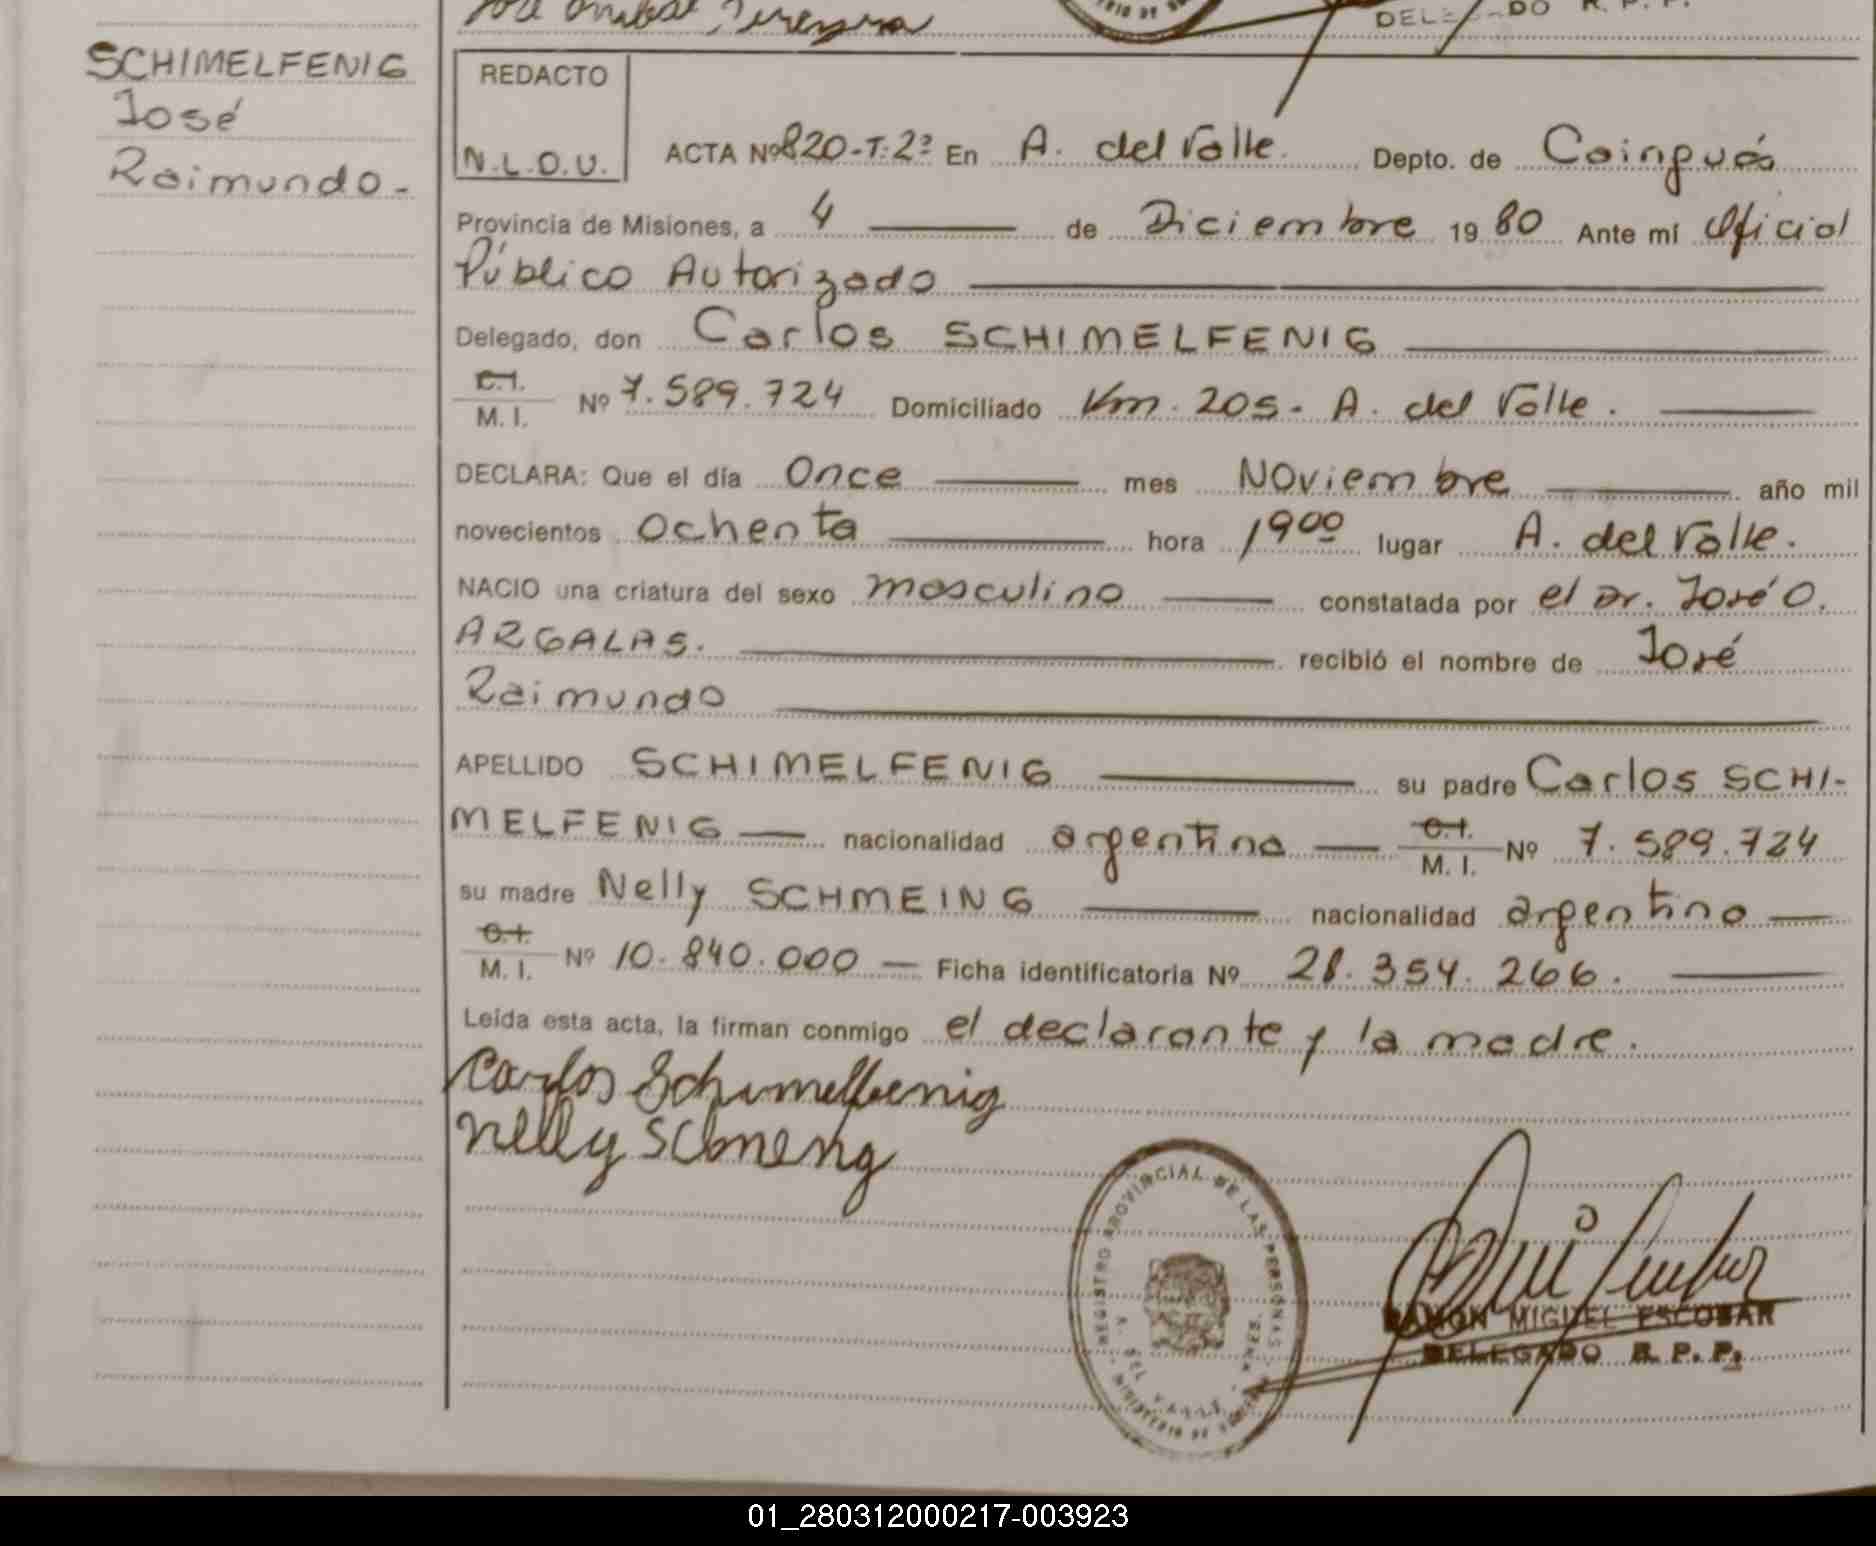 DELEGADO R. P. P.
SCHIMELFENIG
José
Raimundo-
REDACTO
N.L.O.U.
ACTA Nº 820-T-2º En A. del Valle. Depto. de Cainguás
Provincia de Misiones, a 4 de Diciembre 1980 Ante mí Oficial
Público Autorizado
Delegado, don Carlos SCHIMELFENIG
C.I.
M. I. Nº 7.589.724 Domiciliado Km. 205- A. del Valle.
DECLARA: Que el día Once mes Noviembre año mil
novecientos Ochenta hora 19ºº lugar A. del Valle.
NACIO una criatura del sexo masculino constatada por el Dr. José O.
ARGALAS. recibió el nombre de José
Raimundo
APELLIDO SCHIMELFENIG su padre Carlos SCHI-
MELFENIG nacionalidad argentina C.I. M. I. Nº 7.589.724
su madre Nelly SCHMEING nacionalidad argentina
C.I.
M. I. Nº 10.840.000 Ficha identificatoria Nº 28.354.266.
Leída esta acta, la firman conmigo el declarante y la madre.
Carlos Schimelfenig
Nelly Schmeng
REGISTRO PROVINCIAL DE LAS PERSONAS
A. DEL VALLE
MINISTERIO DE
RAMON MIGUEL ESCOBAR
DELEGADO R. P. P.
01_280312000217-003923